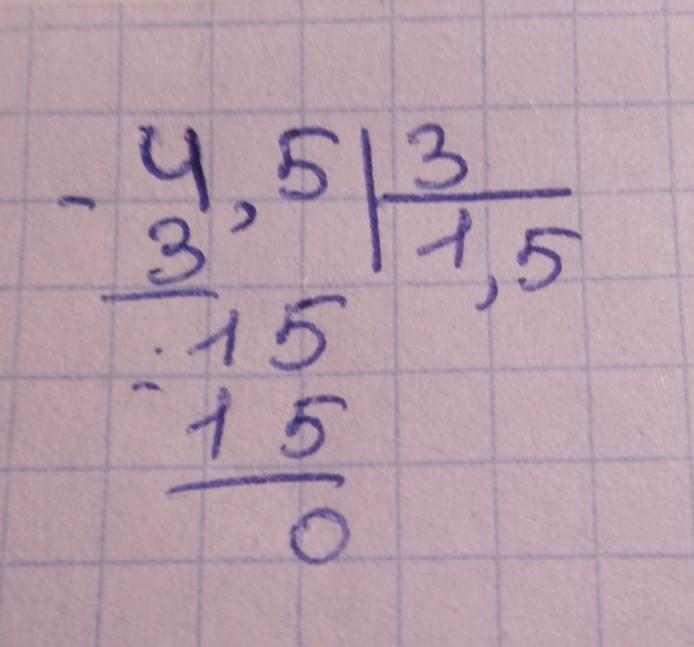 - 4,5 | 3
3 1,5
- 15
15
0